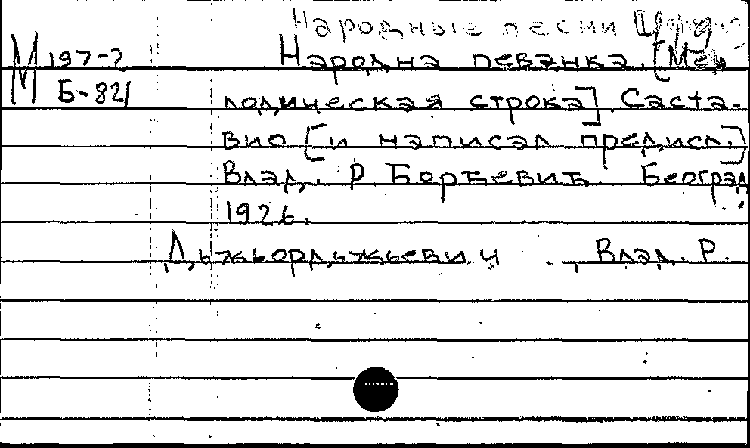 Народные песни
М 197-2
Б-821
Народна певанка. [Ме-
лодическая строка] Соста-
вио [и написал предисл.]
Влад. Р. Ђорђевић. Београд
1926.
Дьжьордьжьевич, Влад. Р.